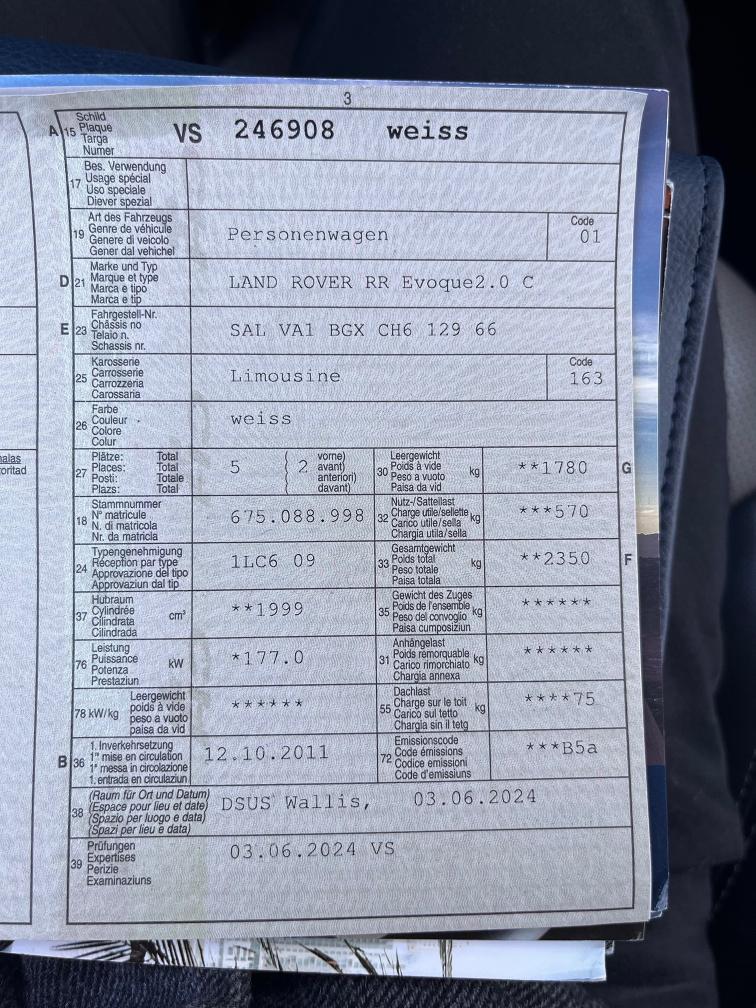 3
A 15 Schild
Plaque
Targa
Numer
VS 246908 weiss
17 Bes. Verwendung
Usage spécial
Uso speciale
Diever spezial
19 Art des Fahrzeugs
Genre de véhicule
Genere di veicolo
Gener dal vehichel
Personenwagen
Code
01
D 21 Marke und Typ
Marque et type
Marca e tipo
Marca e tip
LAND ROVER RR Evoque2.0 C
E 23 Fahrgestell-Nr.
Châssis no
Telaio n.
Schassis nr.
SAL VA1 BGX CH6 129 66
25 Karosserie
Carrosserie
Carrozzeria
Carossaria
Limousine
Code
163
26 Farbe
Couleur
Colore
Colur
weiss
27 Plätze: Total
Places: Total
Posti: Totale
Plazs: Total
5 ( 2 vorne)
avant)
anteriori)
davant)
30 Leergewicht
Poids à vide
Peso a vuoto
Paisa da vid
kg
**1780
G
18 Stammnummer
N° matricule
N. di matricola
Nr. da matricla
675.088.998
32 Nutz-/Sattellast
Charge utile/sellette
Carico utile/sella
Chargia utila/sella
kg
***570
24 Typengenehmigung
Réception par type
Approvazione del tipo
Approvaziun dal tip
1LC6 09
33 Gesamtgewicht
Poids total
Peso totale
Paisa totala
kg
**2350
F
37 Hubraum
Cylindrée
Cilindrata
Cilindrada
cm³
**1999
35 Gewicht des Zuges
Poids de l'ensemble
Peso del convoglio
Paisa cumposiziun
kg
******
76 Leistung
Puissance
Potenza
Prestaziun
kW
*177.0
31 Anhängelast
Poids remorquable
Carico rimorchiato
Chargia annexa
kg
******
78 kW/kg Leergewicht
poids à vide
peso a vuoto
paisa da vid
******
55 Dachlast
Charge sur le toit
Carico sul tetto
Chargia sin il tetg
kg
****75
B 36 1. Inverkehrsetzung
1re mise en circulation
1a messa in circolazione
1. entrada en circulaziun
12.10.2011
72 Emissionscode
Code émissions
Codice emissioni
Code d'emissiuns
***B5a
38 (Raum für Ort und Datum)
(Espace pour lieu et date)
(Spazio per luogo e data)
(Spazi per lieu e data)
DSUS Wallis, 03.06.2024
39 Prüfungen
Expertises
Perizie
Examinaziuns
03.06.2024 VS